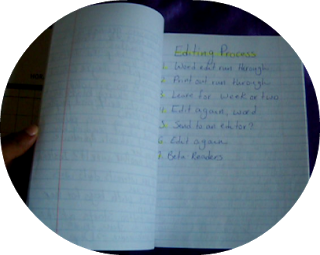 Editing Process
1. Word edit run through
2. Print out run through
3. Leave for week or two
4. Edit again, word
5. Send to an editor?
6. Edit again
7. Beta Readers